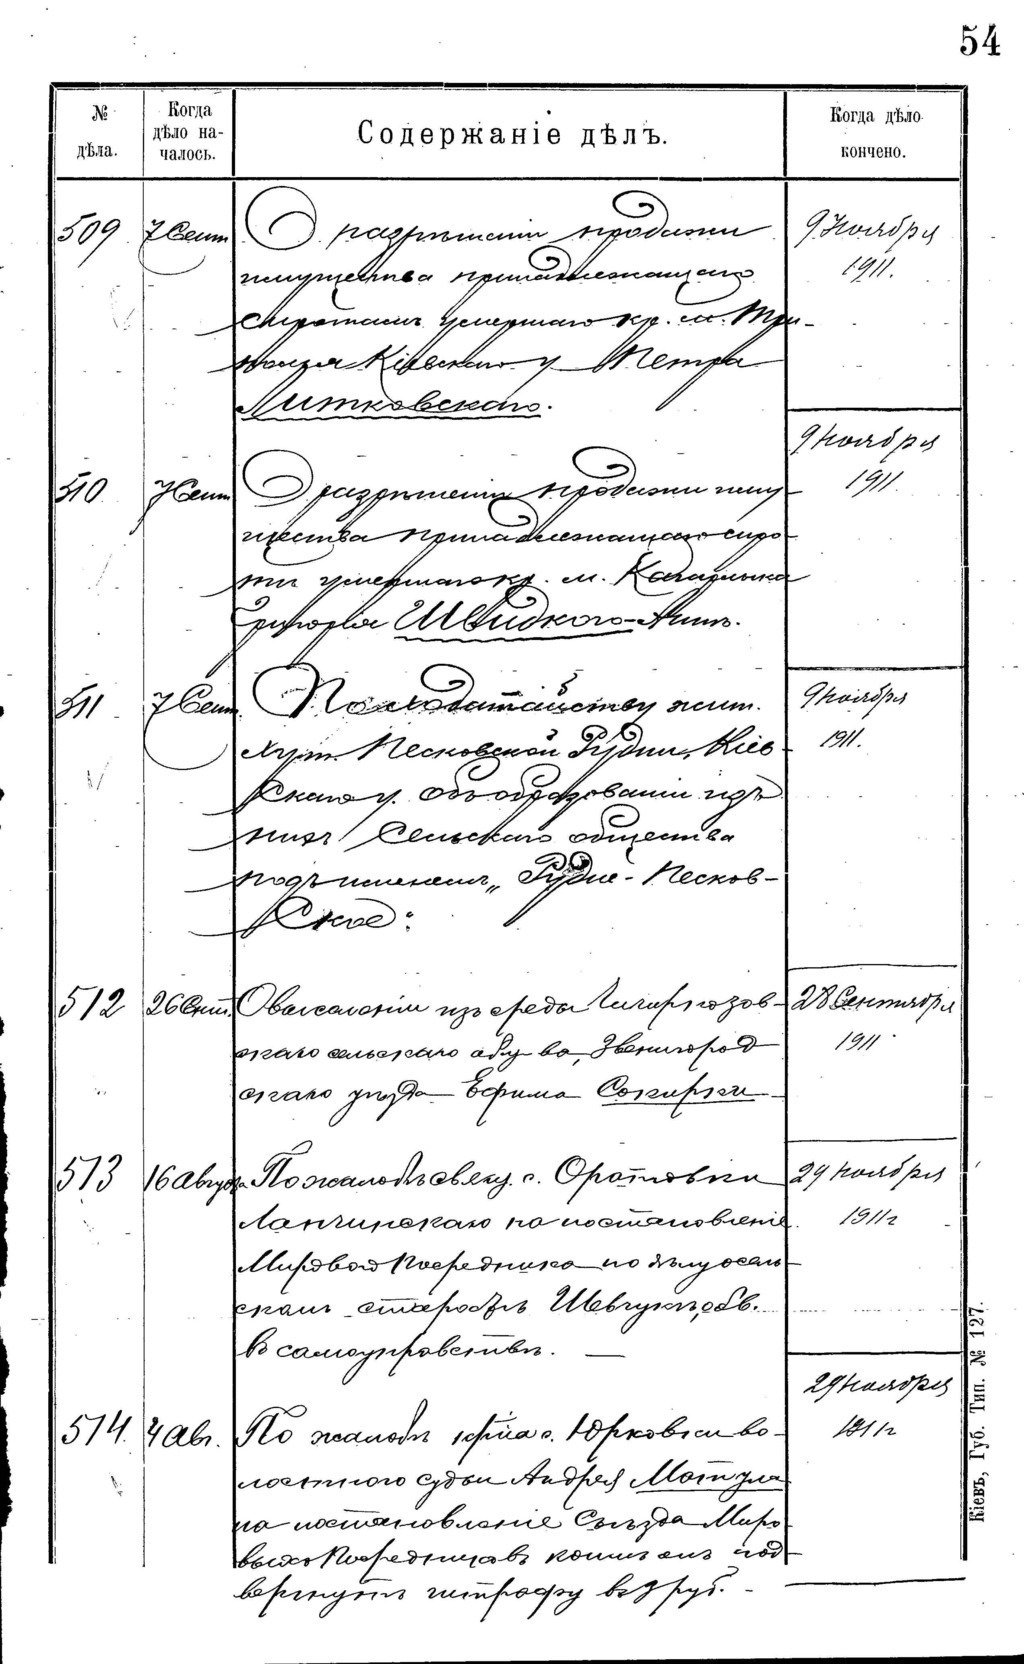 54
№ дѣла.
Когда дѣло началось.
Содержаніе дѣлъ.
Когда дѣло кончено.
509 7 Сент О разрѣшеніи продажи 9 Ноября
имущества принадлежащаго 1911.
сиротамъ умершаго кр. м. Три-
полья Кіевскаго у Петра
Литковскаго.
9 ноября
510 7 Сент О разрѣшеніи продажи иму 1911.
щества принадлежащаго сиро
тѣ умершаго кр. м. Кагарлыка
Григорія Швидкого-Аннѣ.
511 7 Сент По ходатайству жит. 9 ноября
хут. Песковской Рудни, Кіев 1911.
скаго у. объ образованіи изъ
нихъ Сельскаго общества
подъ именемъ „Рудне-Песков-
ское:
512 26 Сент О выселеніи изъ среды 28 Сентября
скаго сельскаго общ-ва, Звенигород 1911
скаго уѣзда Ефима Сокирки
513 16 Август По жалобѣ свящ. с. Оратовки 29 ноября
на постановленіе 1911 г
Мирового Посредника по дѣлу о сель
скомъ старостѣ Шевчукѣ, обв.
въ самоуправствѣ. —
29 ноября
514. 4 Авг. По жалобѣ кр-на с. Юрковки во- 1911 г
лостного судьи Андрея
на постановленіе Съѣзда Миро
выхъ Посредниковъ коимъ онъ под
вергнутъ штрафу въ 3 руб. -
Кіевъ, Губ. Тип. № 127.